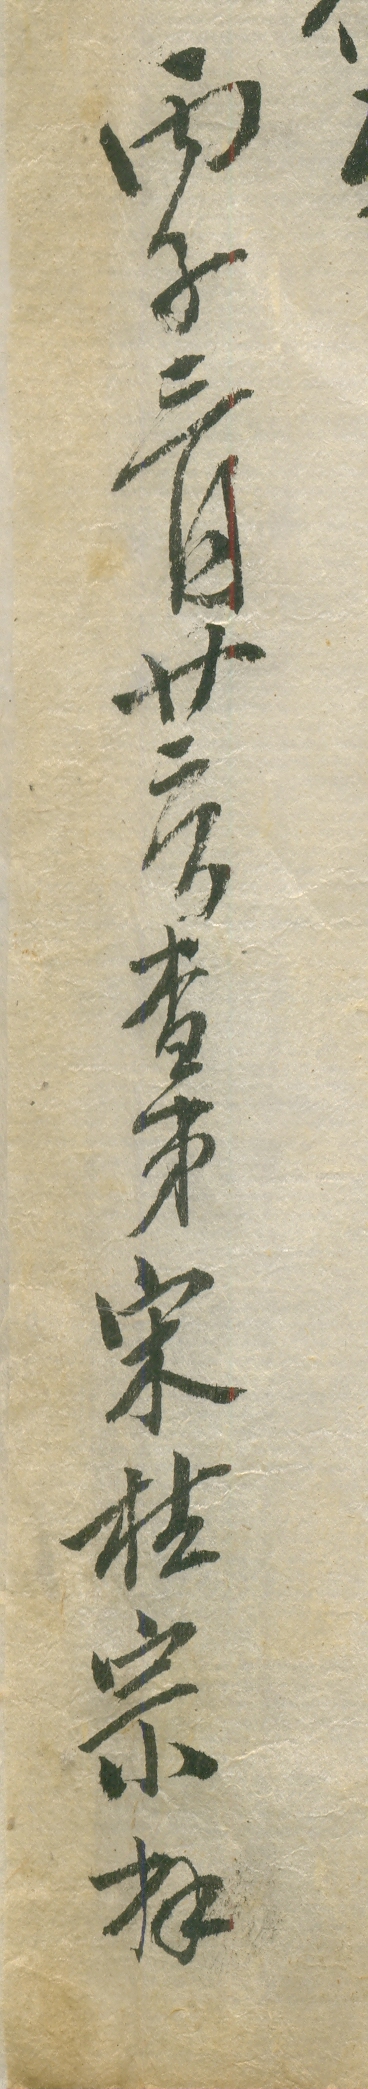 丙子三月廿六日查弟宋桂宗拜